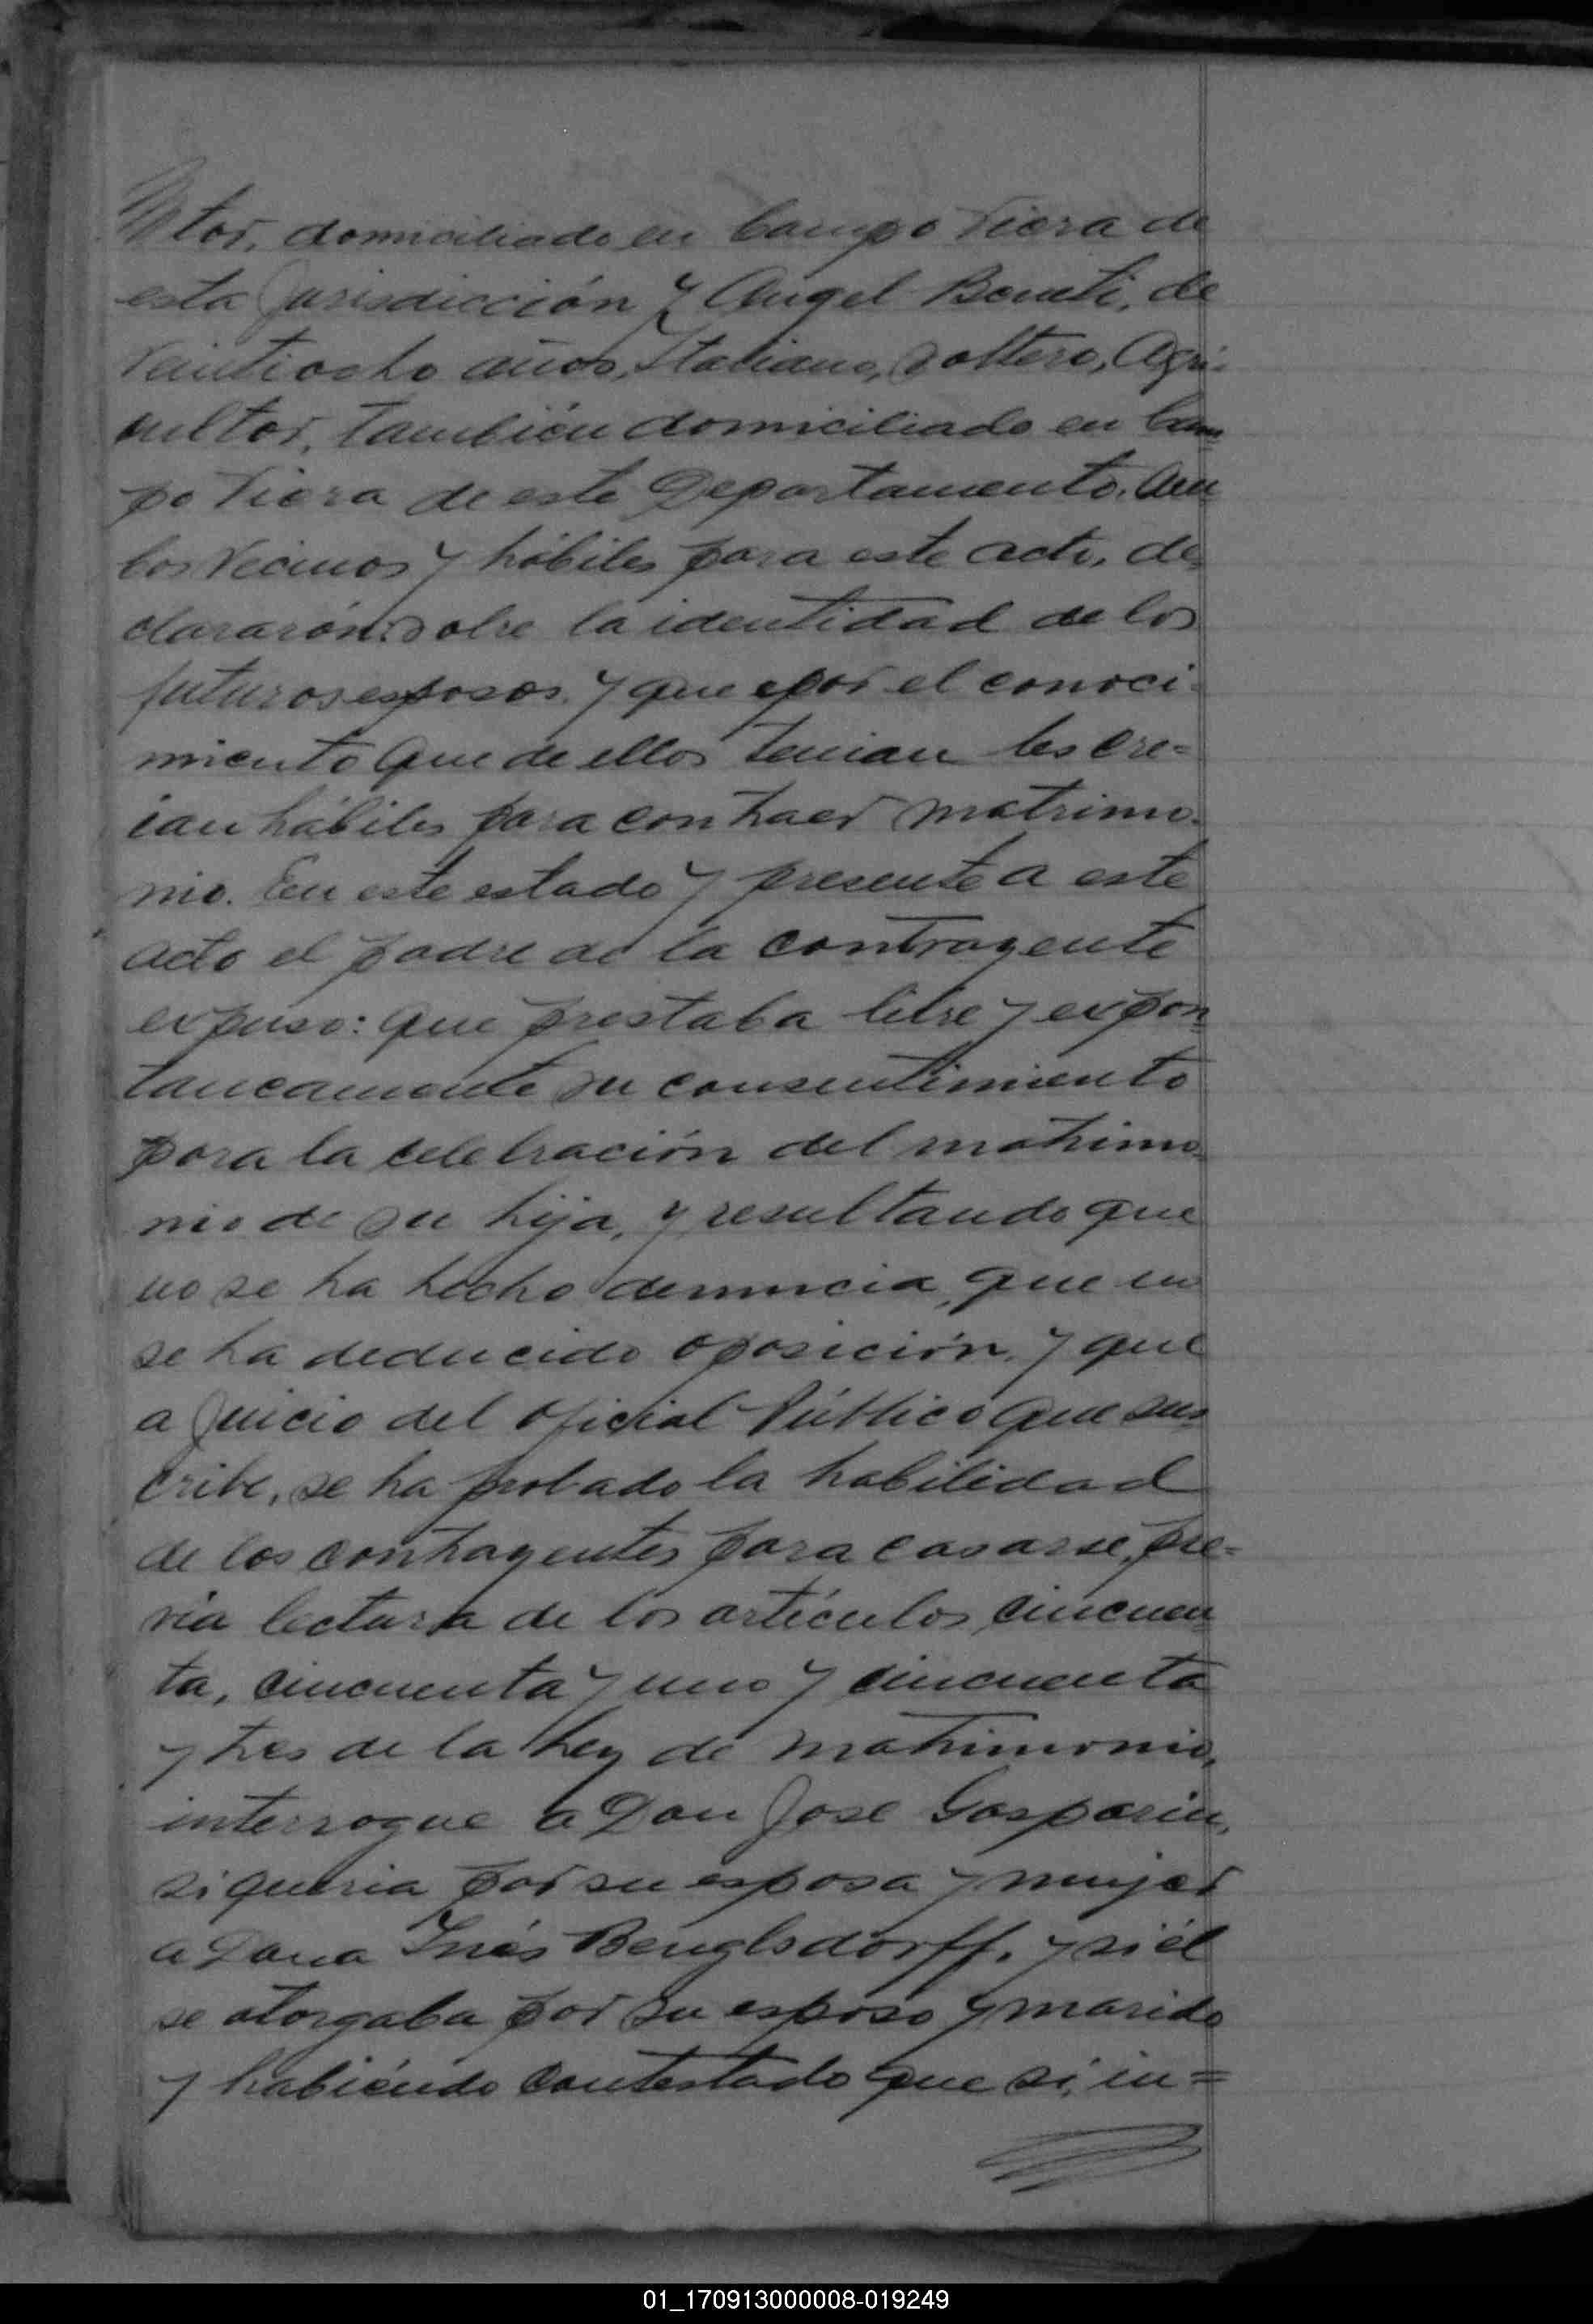 ltor, domiciliado en Campo Viera de
esta Jurisdicción y Angel Beneti, de
Veintiocho años, Italiano, Soltero, Agri-
cultor, también domiciliado en Cam-
po Viera de este Departamento. Am-
bos Vecinos y hábiles para este acto, de-
clararón: Sobre la identidad de los
futuros esposos, y que por el conoci-
miento que de ellos tenian les cre-
ian hábiles para contraer matrimo-
nio. En este estado y presente a este
acto el padre de la contrayente
expuso: que prestaba libre y expon-
taneamente su consentimiento
para la celebración del matrimo-
nio de su hija, y resultando que
no se ha hecho denuncia, que no
se ha deducido oposición, y que
a Juicio del Oficial Público que sus-
cribe, se ha probado la habilidad
de los contrayentes para casarse, pre-
via lectura de los artículos cincuen-
ta, cincuenta y uno y cincuenta
y tres de la Ley de matrimonio,
interrogue a Don José Gasparin,
si queria por su esposa y mujer
a Doña Inés Benglsdorff, y si él
se otorgaba por su esposo y marido
y habiéndo contestado que si, in=
01_170913000008-019249